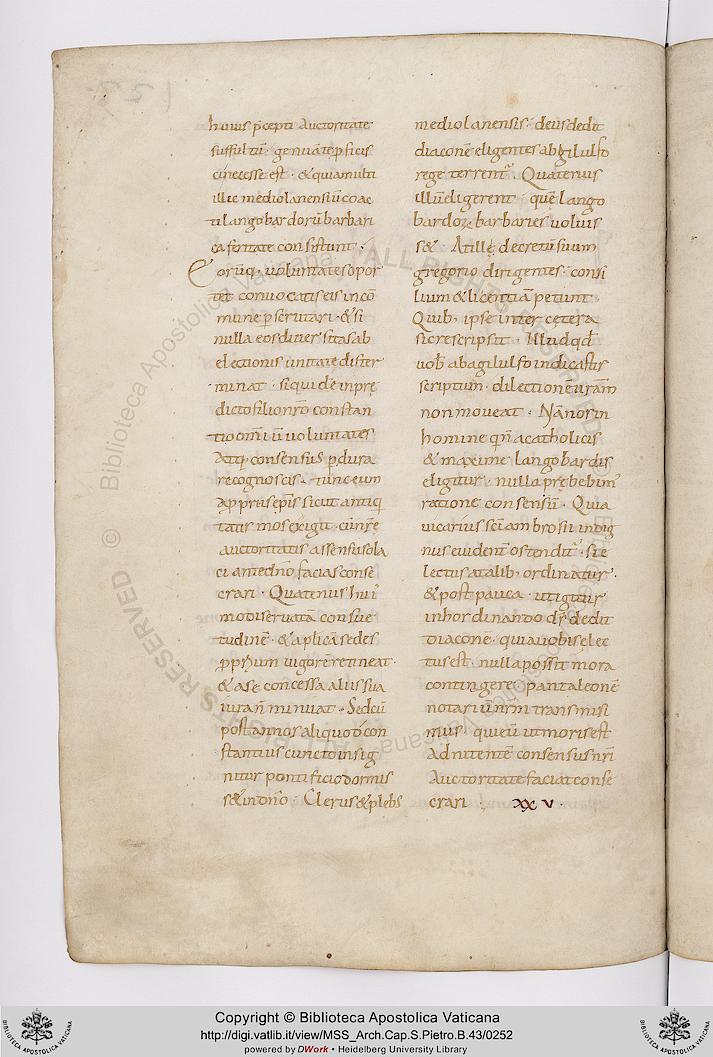 huius p̄cepti Auctoritate
suffultū · genuā te pficis
ci necesse est · & quia multi
illic mediolanensiū coac
ti langobardorū barbari
ca feritate consistunt ·
Eorūq; voluntates opor
tet convocatis eis incō
mune pscrutari · & si
nulla eos diversitas ab
electionis unitate dister
minat · siquidē inprę
dicto filio nr̄o constan
tio omniū voluntates
Atq; consensus pdura
recognoscis · tunc eum
appriis ep̄is sicut antiq
tatis mos exigit · cū nr̄ę
auctoritatis assensu sola
ci antedn̄o facias conse
crari · Quatenus hui
modi servata consue
tudinē · & aplicā sedes
pprium vigorē retineat ·
& a se concessa aliis sua
iura n̄ minuat · Sed cū
post annos aliquod con
stantius cuncto insig
nitur pontificio dormis
s& indn̄o · Clerus & plebs
mediolanensis · deusdedit
diaconē eligentes ab gilulfo
rege terrent · Quaterius
illū eligerent · quē lango
bardoꝝ barbaries voluis
s& · At illę decretū suum
gregorio dirigentes · consi
lium & licentiā petunt ·
Quib; ipse inter cętera
sic rescripsit · Illud qd̄
vob abagilulfo indicastis
scriptum · dilectionē vrām
non moveat · Nā nos in
homine qui a catholicis
& maxime langobardis
eligitur · nulla prębebim
ratione consensū · Quia
vicarius sci ambrosii indig
nus evident ostendit · si e
lectus a talib; ordinatur ·
& post pauca · ut igitur
in hordinando dr̄ · dedit
diaconē · quia vobis elec
tus est · nulla possit mora
contingere · pantaleonē
notariū nrm transmisi
mus · qui eū ut moris est
Ad nitentē consensus nr̄i
Auctoritate faciat conse
crari · XXV ·
© Biblioteca Apostolica Vaticana ALL RIGHTS RESERVED
Copyright © Biblioteca Apostolica Vaticana
http://digi.vatlib.it/view/MSS_Arch.Cap.S.Pietro.B.43/0252
powered by DWork • Heidelberg University Library
BIBLIOTECA APOSTOLICA VATICANA
BIBLIOTECA APOSTOLICA VATICANA